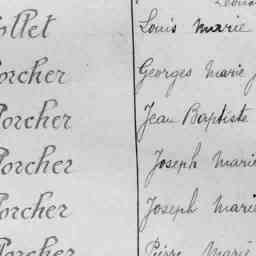 ollet Louis Marie
orcher Georges Marie J
Porcher Jean Baptiste
Porcher Joseph Marie
orcher Joseph Marie
Porcher Pierre Marie